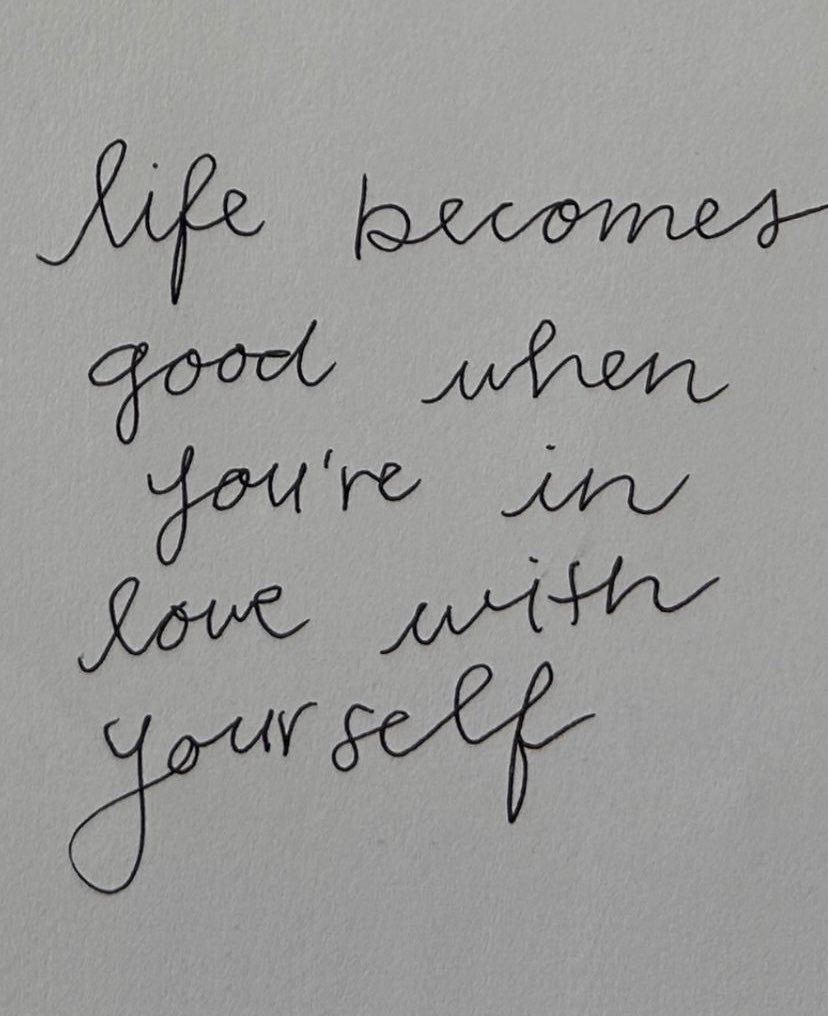 life becomes
good when
you're in
love with
yourself